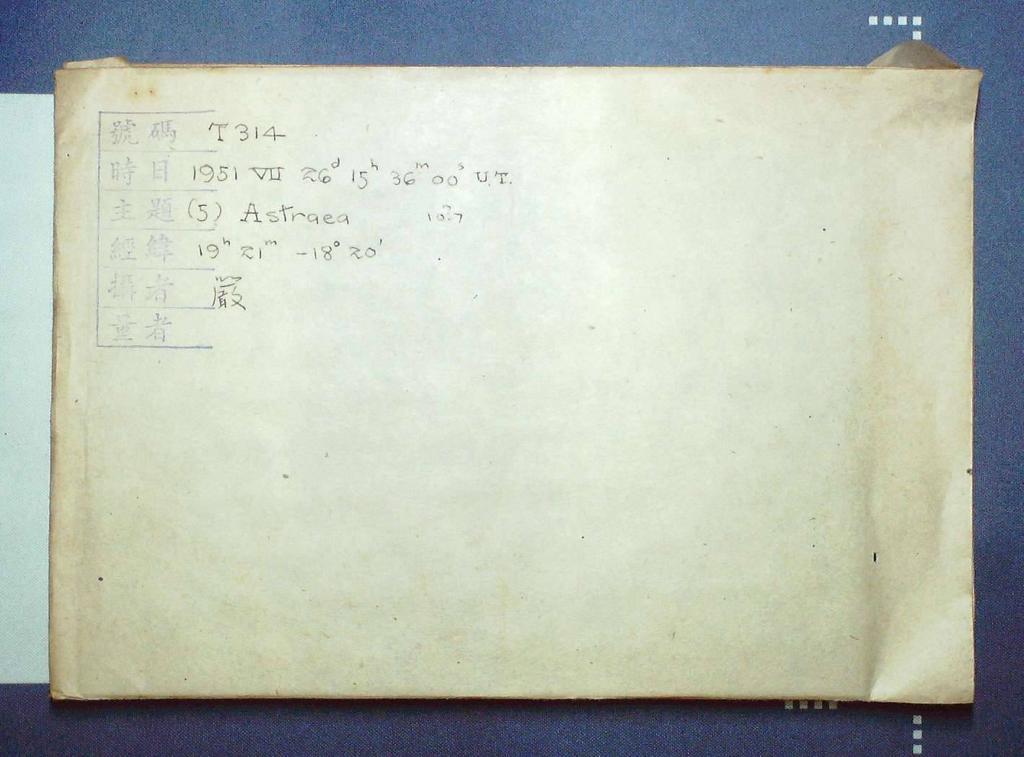 號碼 T 314
時日 1951 VII 26ᵈ 15ʰ 36ᵐ 00ˢ U.T.
主題 (5) Astraea 10.7
經緯 19ʰ 21ᵐ -18° 20'
攝者 嚴
量者